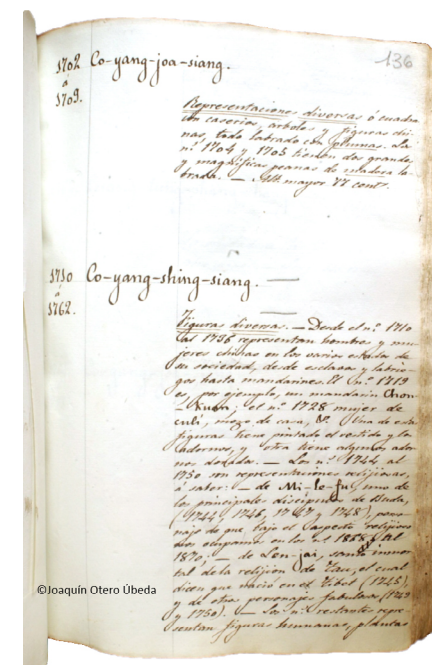 136
1702 Co-yang-joa-siang.
á
1709.
Representaciones diversas ó cuadros
con caserios, arboles y figuras chi-
nas, todo labrado con plumas. La
nº 1704 y 1705 tienen dos grandes
y magnificas peanas de madera la-
brada. — Alt. mayor 77 centº.
1710 Co-yang-shing-siang. —
á
1762.
Figuras diversas. — Desde el nº 1710
las 1736 representan hombres y mu-
jeres chinas en los varios estados de
su sociedad, desde esclavos y labrie-
gos hasta mandarines. El nº 1719
es, por ejemplo, un mandarin Chon-
; el nº 1728 mujer de
culí, mozo de casa, &. Una de estas
figuras tiene pintado el vestido y los
adornos, y otra tiene algunos ador-
nos dorados. — Los nº 1744 al
1750 son representaciones religiosas,
á saber: — de Mi-le-fu, uno de
los principales discipulos de Buda,
(1744, 1746, 1747 y 1748), perso-
naje de que, bajo el aspecto religioso
nos ocupamos en los nº 1868 al
1870; — de Len-jai, santo inmor-
tal de la religion de Tau, el cual
dicen que nació en el Tibet (1745),
y de otros personajes fabulosos (1749
y 1750). — Los nº restantes repre-
sentan figuras humanas, plantas
©Joaquín Otero Úbeda